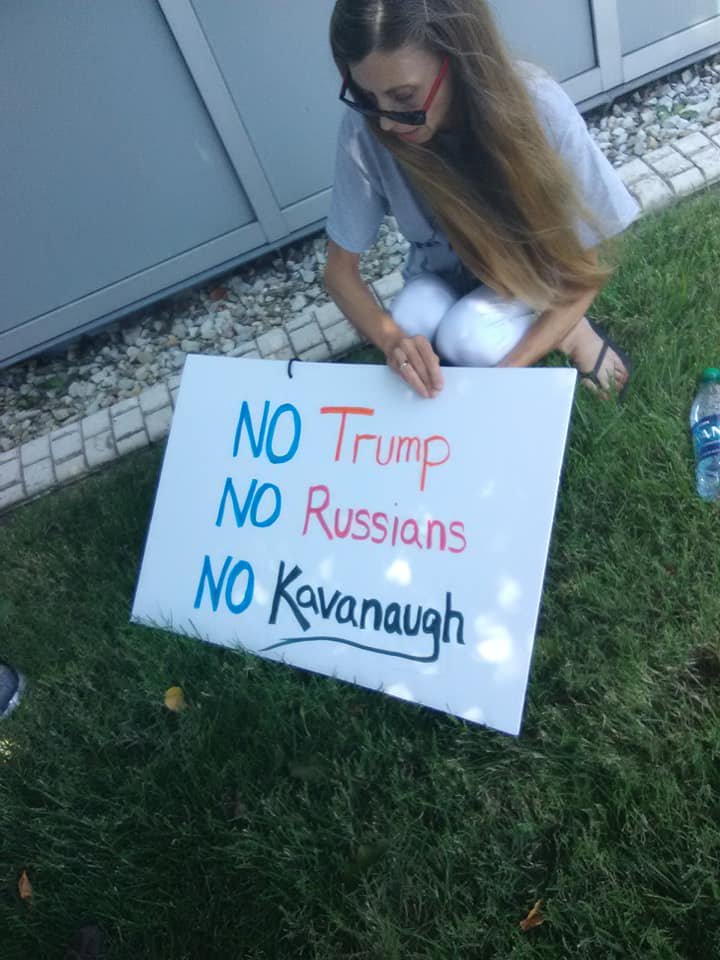 NO Trump
NO Russians
NO Kavanaugh